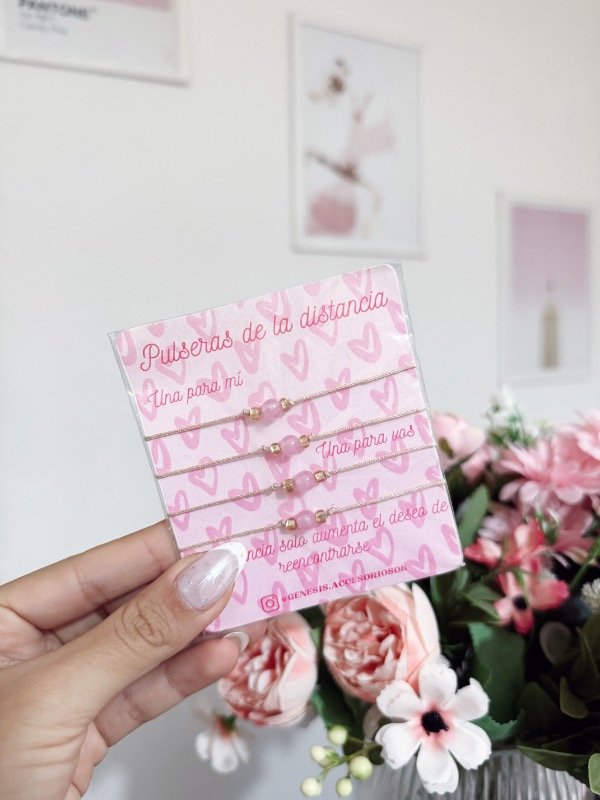 PANTONE®
Pulseras de la distancia
Una para mí
Una para vos
ncia solo aumenta el deseo de
reencontrarse
@GENESIS.ACCESORIOSOK